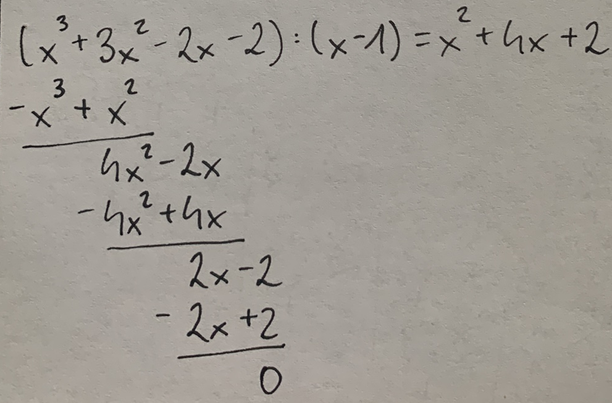 (x³+3x²-2x-2):(x-1)=x²+4x+2
-x³+x²
4x²-2x
-4x²+4x
2x-2
-2x+2
0